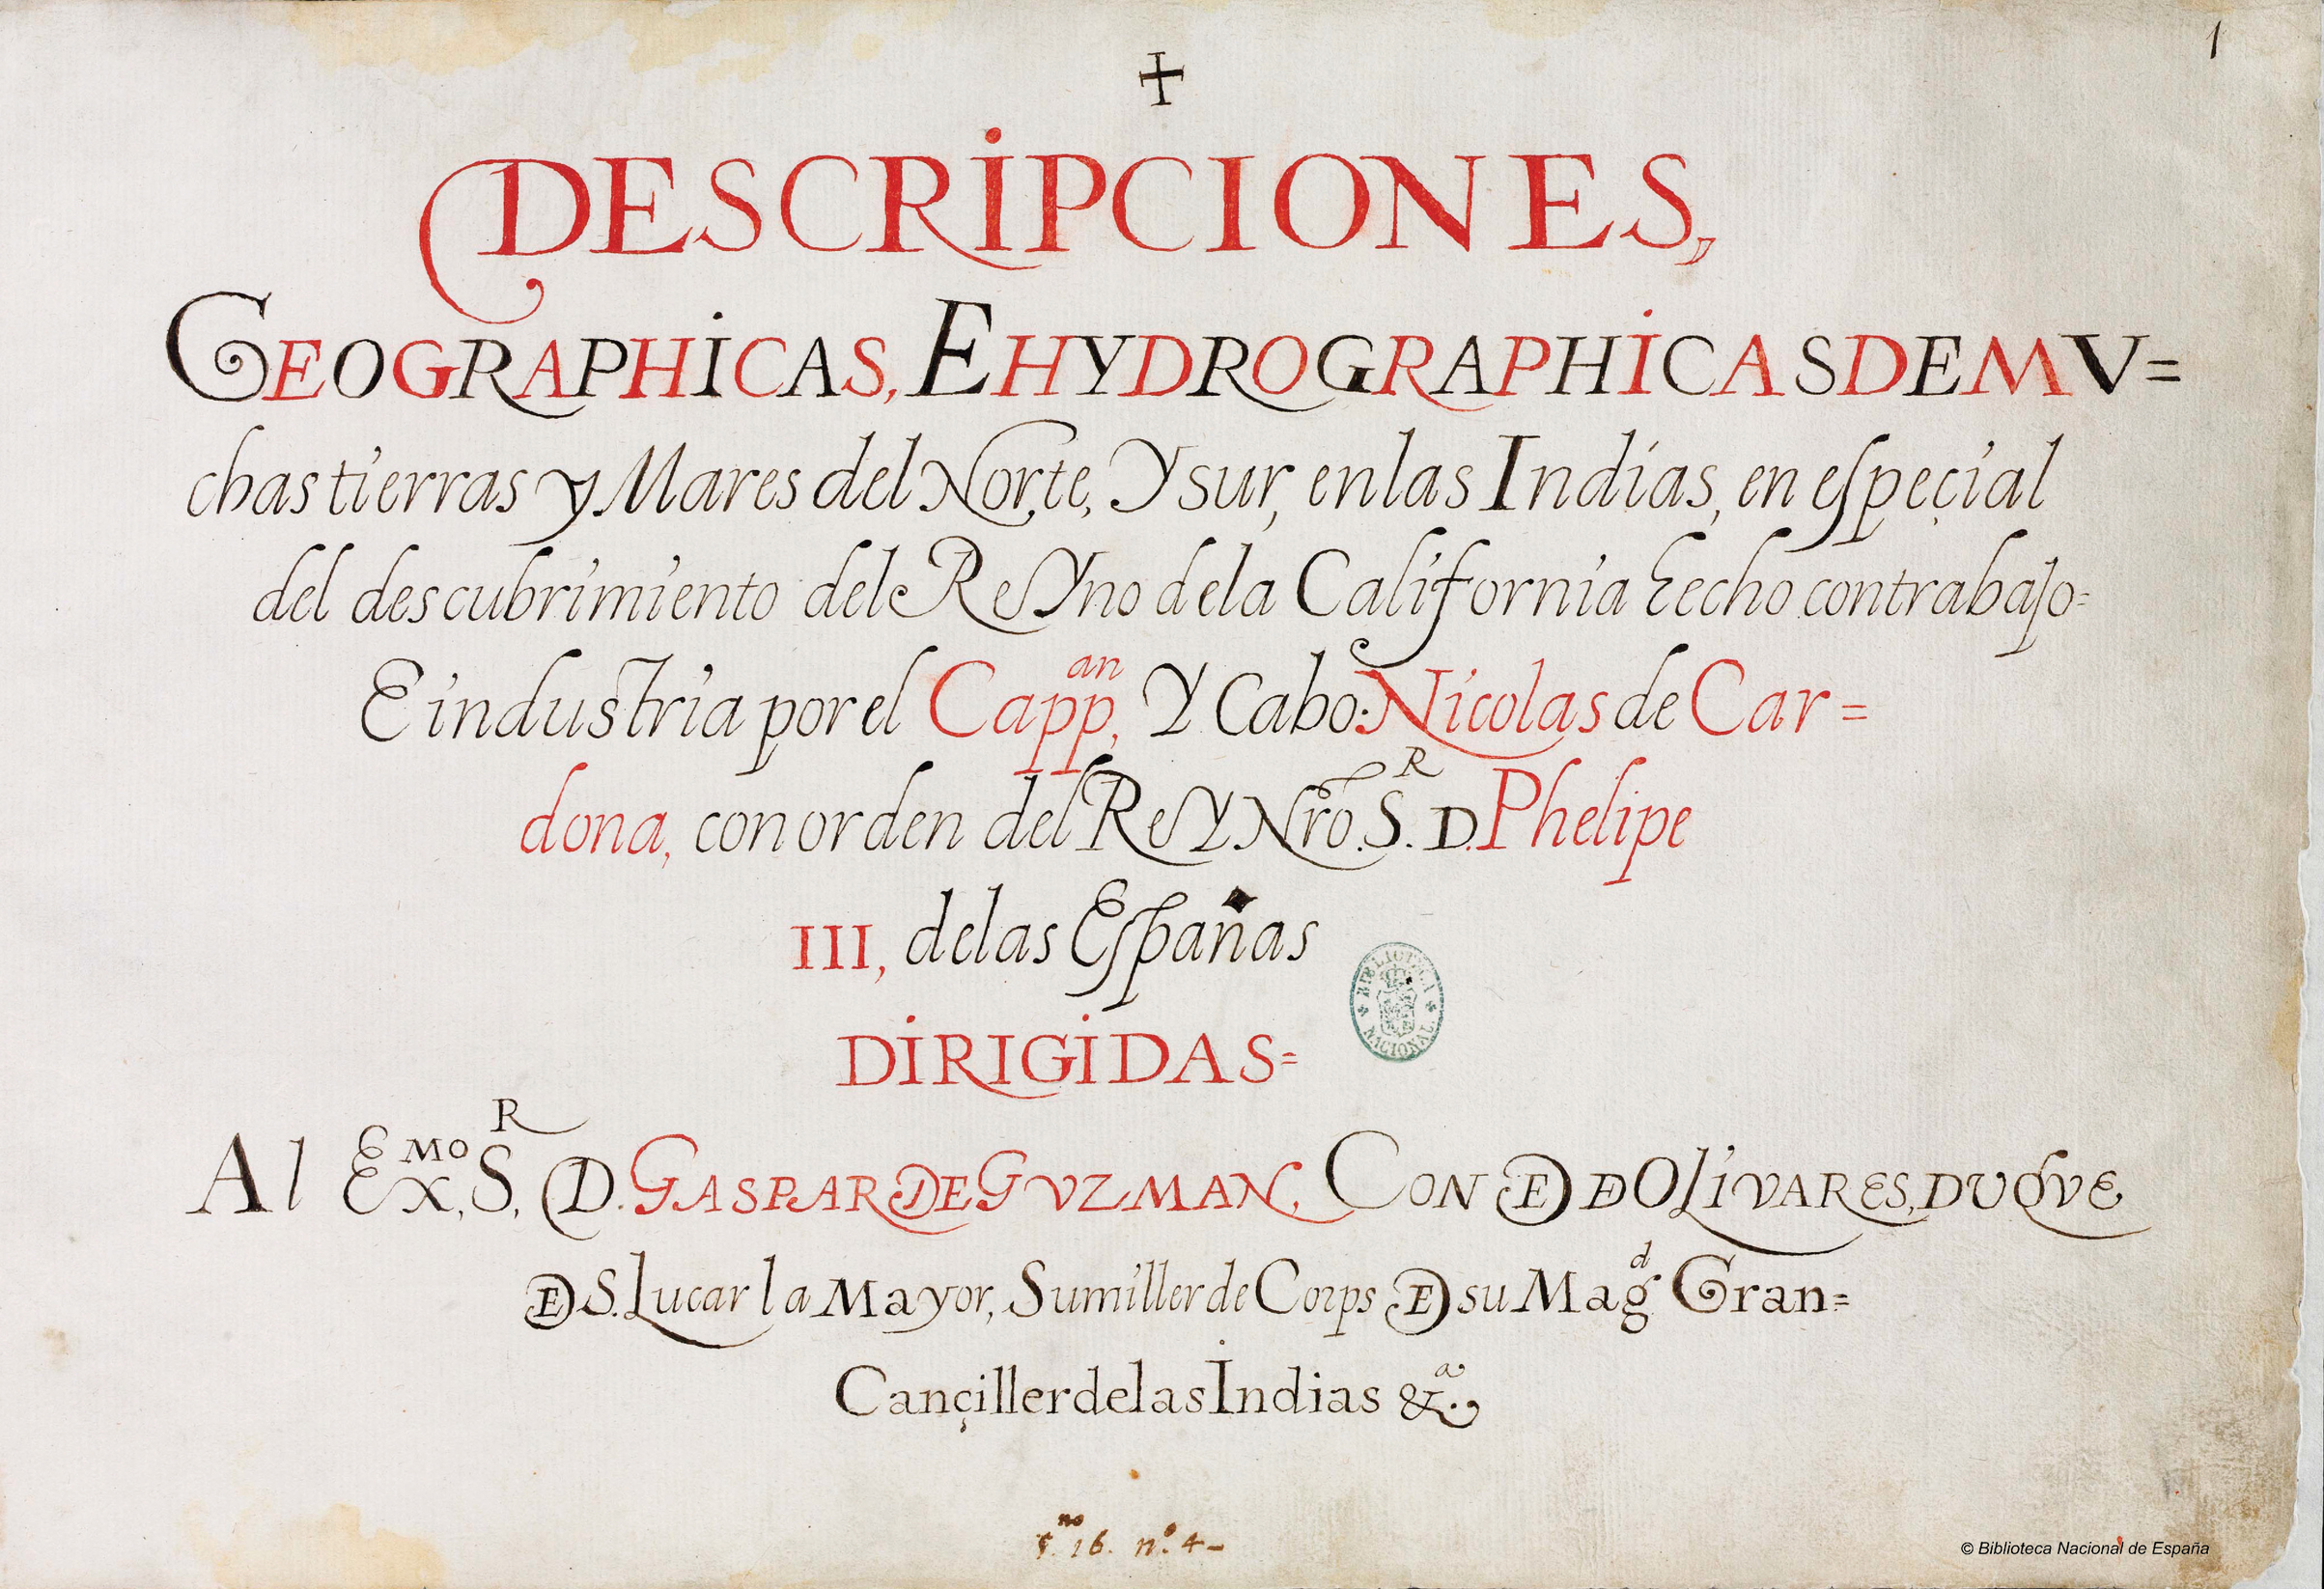 1
✝
DESCRIPCIONES,
GEOGRAPHICAS, E HYDROGRAPHICAS DE MV=
chas tierras y Mares del Norte, Y sur, en las Indias, en espeçial
del descubrimiento del ReYno de la California hecho con trabajo=
E industria por el Capp.an, Y Cabo: Nicolas de Car=
dona, con orden del ReY Nro. S.R D. Phelipe
III, de las Españas
BIBLIOTECA NACIONAL
DIRIGIDAS=
Al EX.MO S.R D. GASPAR DE GVZMAN, CONDE DE OLIVARES, DUQVE
DE S. Lucar la Mayor, Sumiller de Corps DE su Mag.d Gran=
Cançiller de las Indias &.a
16. n.o 4-
© Biblioteca Nacional de España